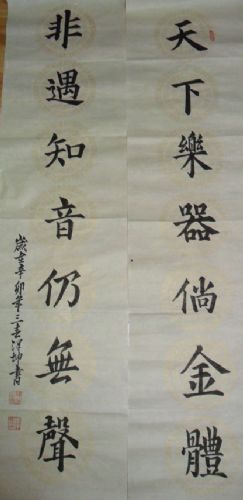 天下樂器倘金體
非遇知音仍無聲
歲在辛卯年三春澤坤書